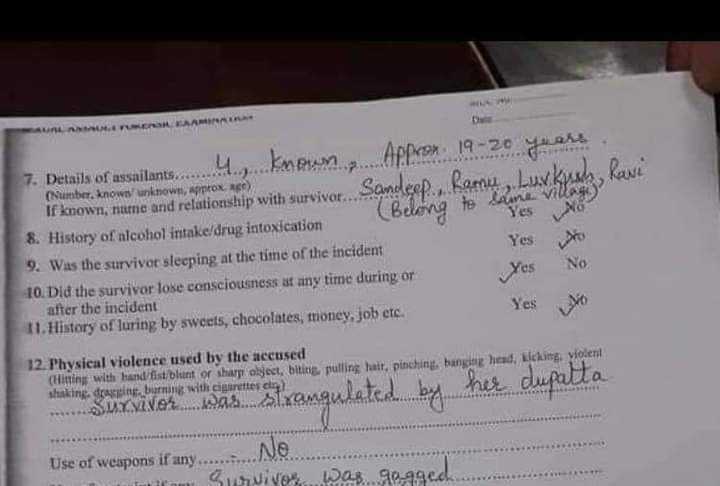 SEXUAL ASSAULT FORENSIC EXAMINATION
Date
7. Details of assailants......4, known, Approx. 19-20 years.
(Number, known/ unknown, approx. age)
If known, name and relationship with survivor...Sandeep, Ramu, Luvkush, Ravi
(Belong to same village)
8. History of alcohol intake/drug intoxication Yes No
9. Was the survivor sleeping at the time of the incident Yes No
10. Did the survivor lose consciousness at any time during or Yes No
after the incident
11. History of luring by sweets, chocolates, money, job etc. Yes No
12. Physical violence used by the accused
(Hitting with hand/fist/blunt or sharp object, biting, pulling hair, pinching, banging head, kicking, violent
shaking, dragging, burning with cigarettes etc)
Survivor was strangulated by her dupatta
Use of weapons if any...... No
Survivor was gagged